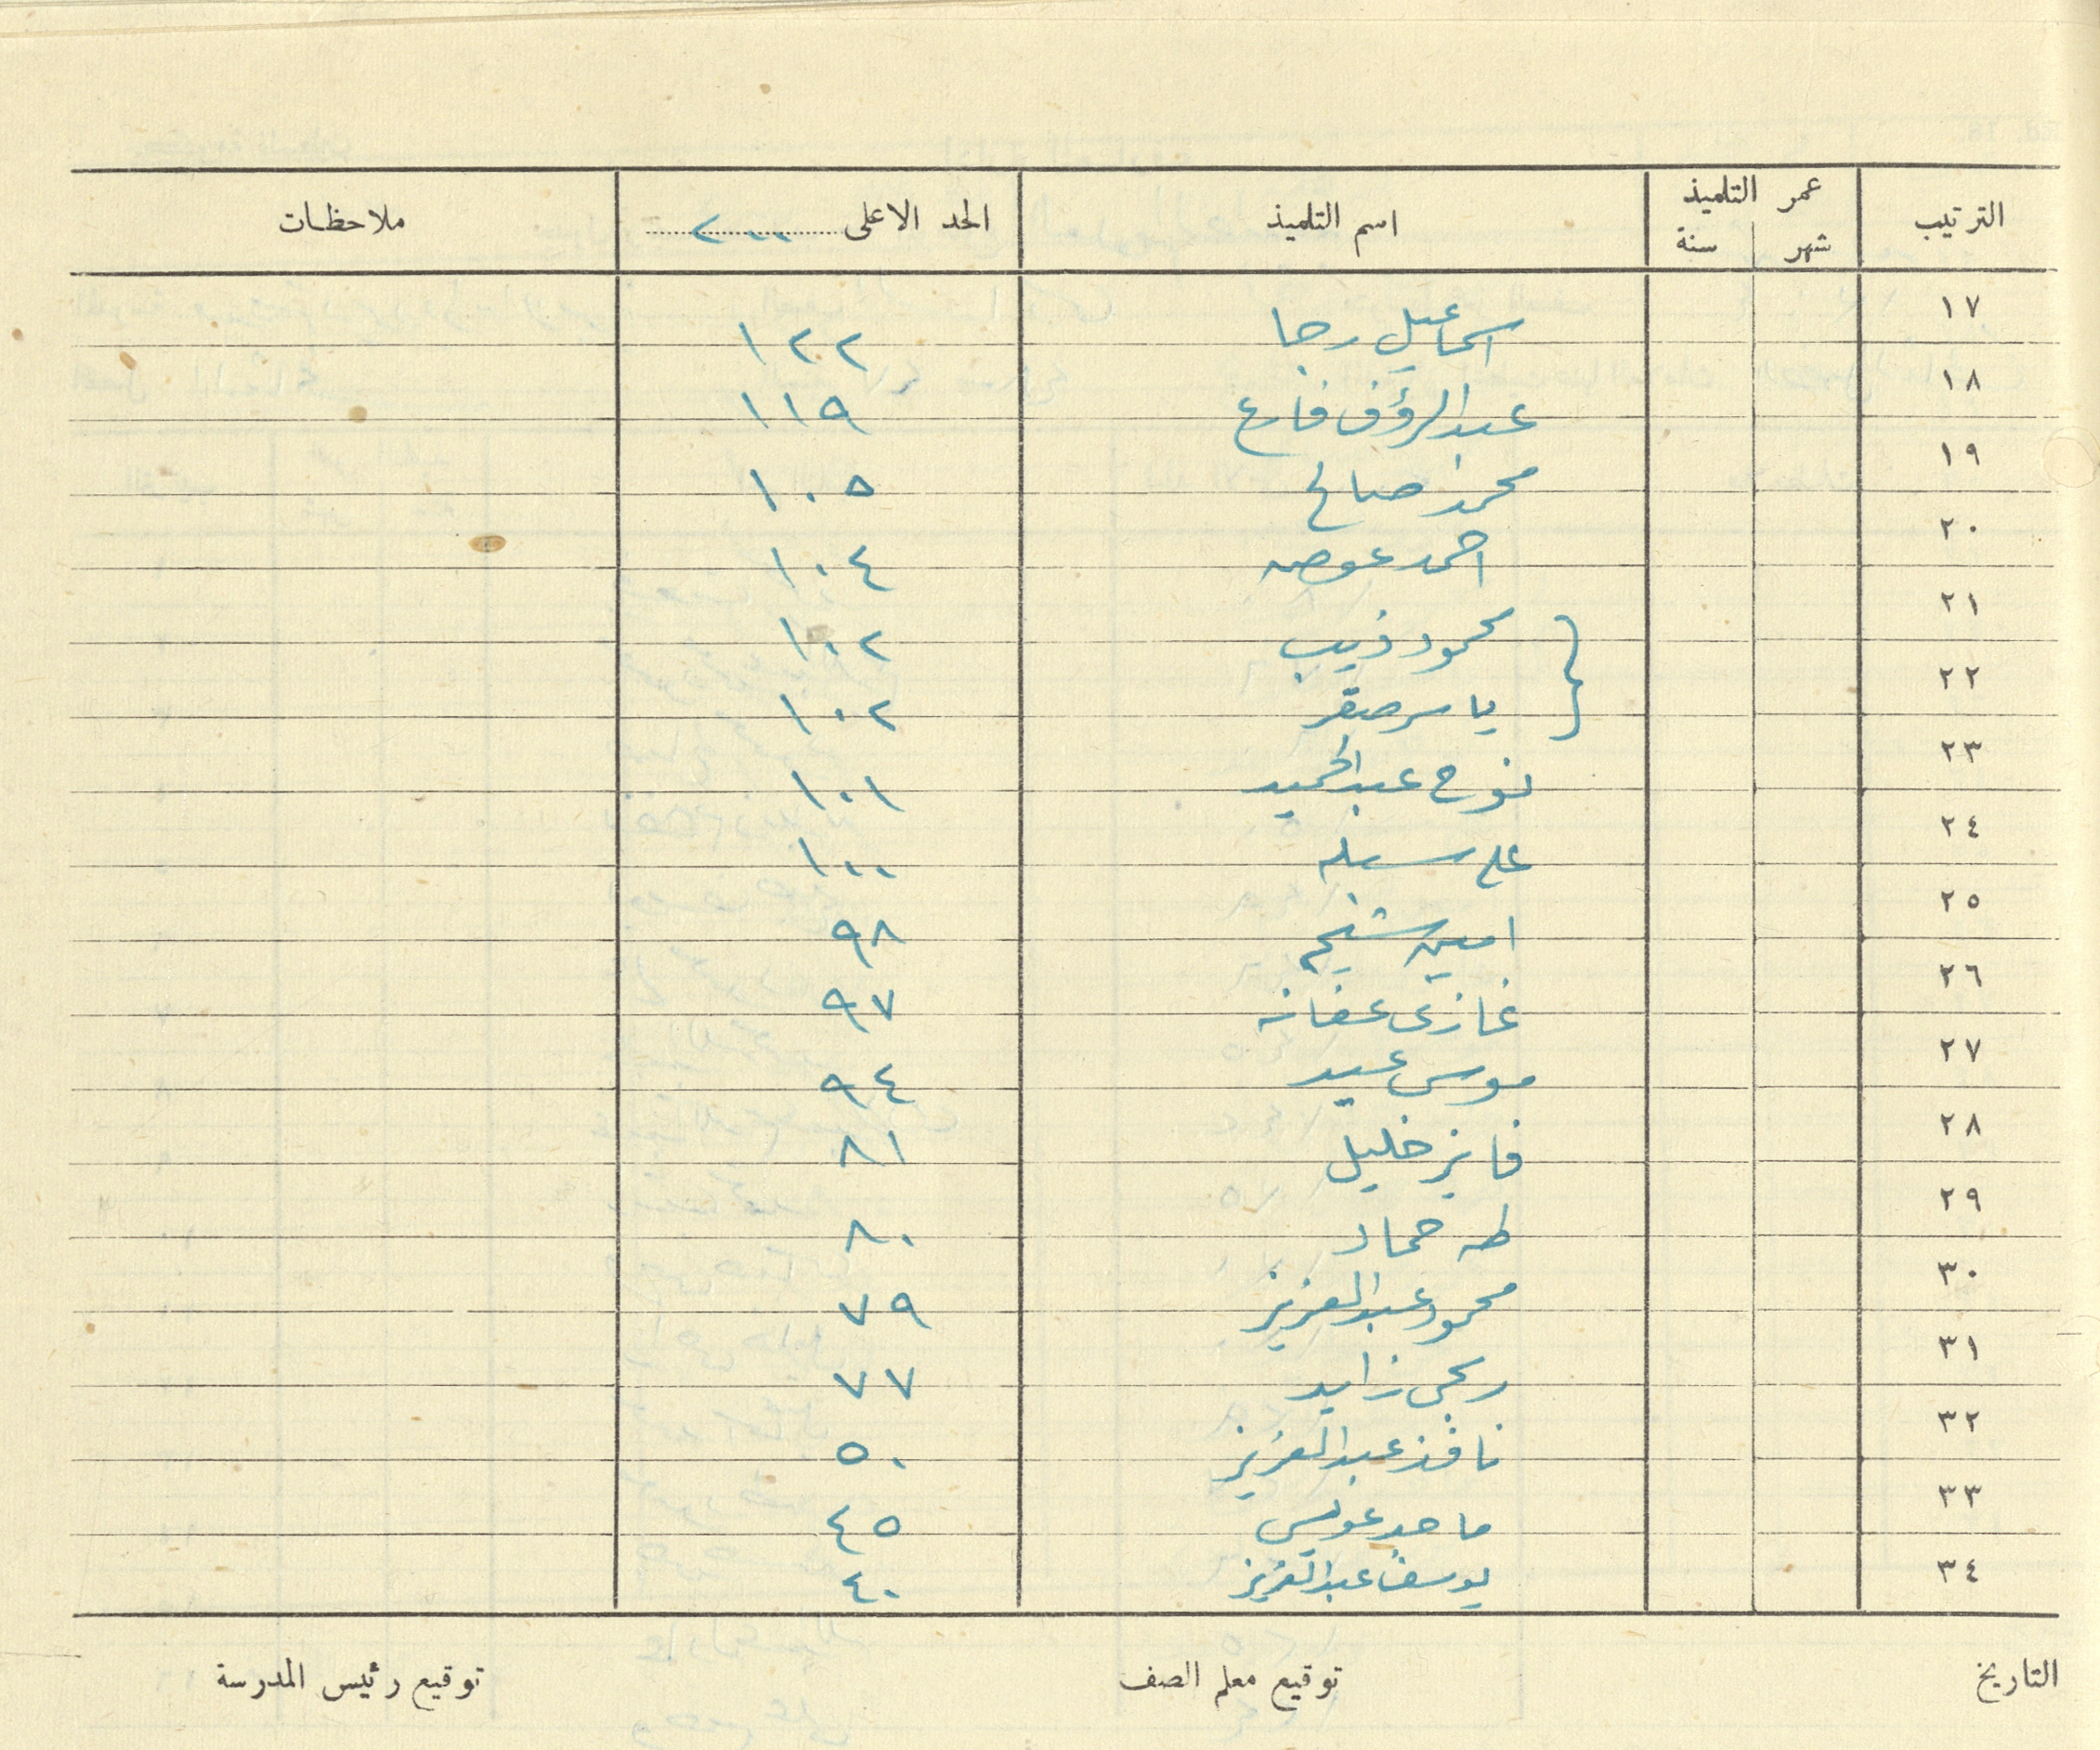 الترتيب عمر التلميذ اسم التلميذ الحد الاعلى ٢٠٠ ملاحظات
شهر سنة
١٧ اسماعيل رجا ١٢٢
١٨ عبد الرؤف فارع ١١٩
١٩ محمد صالح ١٠٥
٢٠ احمد عوض ١٠٤
٢١ محمود ذيب ١٠٢
٢٢ ياسر صقر ١٠٢
٢٣ نوح عبد الحميد ١٠١
٢٤ علي ١٠٠
٢٥ امين شيخ ٩٨
٢٦ غازى عفانه ٩٧
٢٧ موسى عيد ٩٤
٢٨ فايز خليل ٨١
٢٩ طه حماد ٨٠
٣٠ محمود عبد العزيز ٧٩
٣١ ربحي زايد ٧٧
٣٢ نافذ عبد العزيز ٥٠
٣٣ ماجد عويس ٤٥
٣٤ يوسف عبد العزيز ٤٠
التاريخ توقيع معلم الصف توقيع رئيس المدرسة